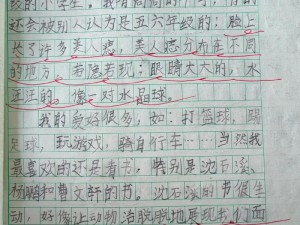 级的小学生。我有高高的个子，有的
还会被别人认为是五六年级的；脸上
长了许多美人痣，美人痣分布在不同
的地方，若隐若现；眼睛大大的，水
汪汪的，像一对水晶球。
我的爱好很多，如：打篮球，踢
足球，玩游戏，骑自行车……当然我
最喜欢的还是看书，特别是沈石溪、
杨鹏和曹文轩的书。沈石溪的书很生
动，好像让动物活脱脱地展现出们面